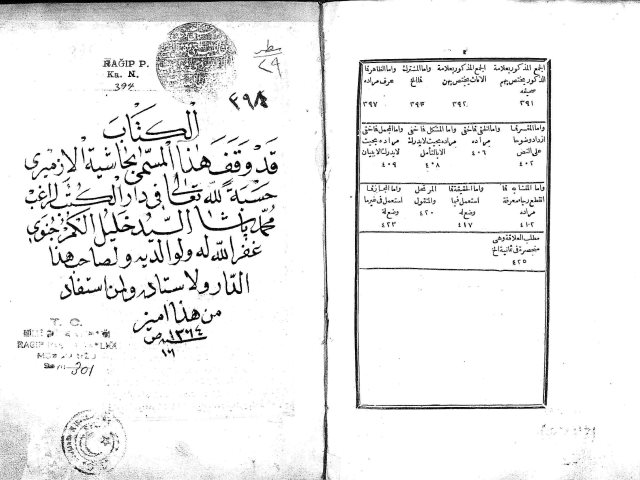 RAĞIP P.
Ka. N.
394
سطر
٢٩
٣٩٤
الكتاب
قد وقف هذا المسمى بحاشية الازميرى
حسبة لله تعالى فى دار الكتب لراغب
محمد پاشا السيد خليل الكمر جنوى
غفر الله له ولوالديه ولصاحب هذا
الدار ولاستاده ولمن استفاد
من هذا امين
سنه ١٣٦٤ ص
١٦
T. C.
RAGIP
301
٤
الجمع المذكور بعلامة الذكور يختص بهم
٣٩١
الجمع المذكور بعلامة الاناث يختص بهن
٣٩٢
واما المشترك فالخ
٣٩٤
واما الظاهر فما عرف مراده
٣٩٧
واما المفسر فما ازداد وضوحا على النص
٤٠٢
واما الخفى فما خفى مراده
٤٠٦
واما المشكل فما خفى مراده بحيث لا يدرك الا بالتأمل
٤٠٨
واما المجمل فما خفى مراده بحيث لا يدرك الا ببيان
٤٠٩
واما المتشابه فما انقطع رجاء معرفة مراده
٤١٢
واما الحقيقة فما استعمل فيما وضع له
٤١٧
المرتجل والمنقول
٤٢٠
واما المجاز فما استعمل فى غير ما وضع له
٤٢٣
مطلب العلاقة وهى منحصرة فى ثمانية الخ
٤٢٥